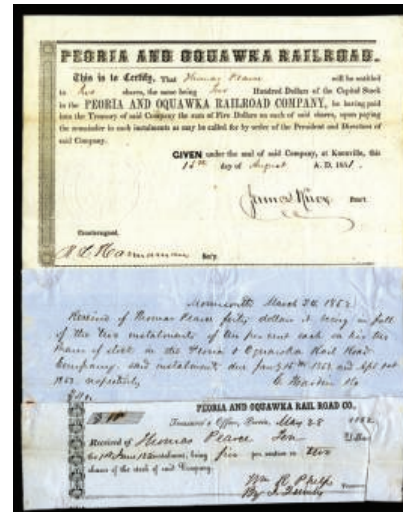 PEORIA AND OQUAWKA RAILROAD.
This is to Certify, That Thomas Pearce will be entitled
to two shares, the same being Two Hundred Dollars of the Capital Stock
in the PEORIA AND OQUAWKA RAILROAD COMPANY, he having paid
into the Treasury of said Company the sum of Five Dollars on each of said shares, upon paying
the remainder in such instalments as may be called for by order of the President and Directors of
said Company.
GIVEN under the seal of said Company, at Knoxville, this
15th day of August A. D. 1851.
James Knox Prest.
Countersigned.
Hannaman Sec'y.
Monmouth March 24, 1852
Received of Thomas Pearce forty dollars it being in full
of the two instalments of ten per cent each on his two
shares of stock in the Peoria & Oquawka Rail Road
Company. said instalments due Jany 15th 1852 and
1852 respectively
$40.
PEORIA AND OQUAWKA RAIL ROAD CO.
$ 10 Treasurer's Office, Peoria, May 28 1852
Received of Thomas Pearce Ten Dollars
being five per centum on two
shares of the stock of said Company.
Wm Phelps Treasurer
By